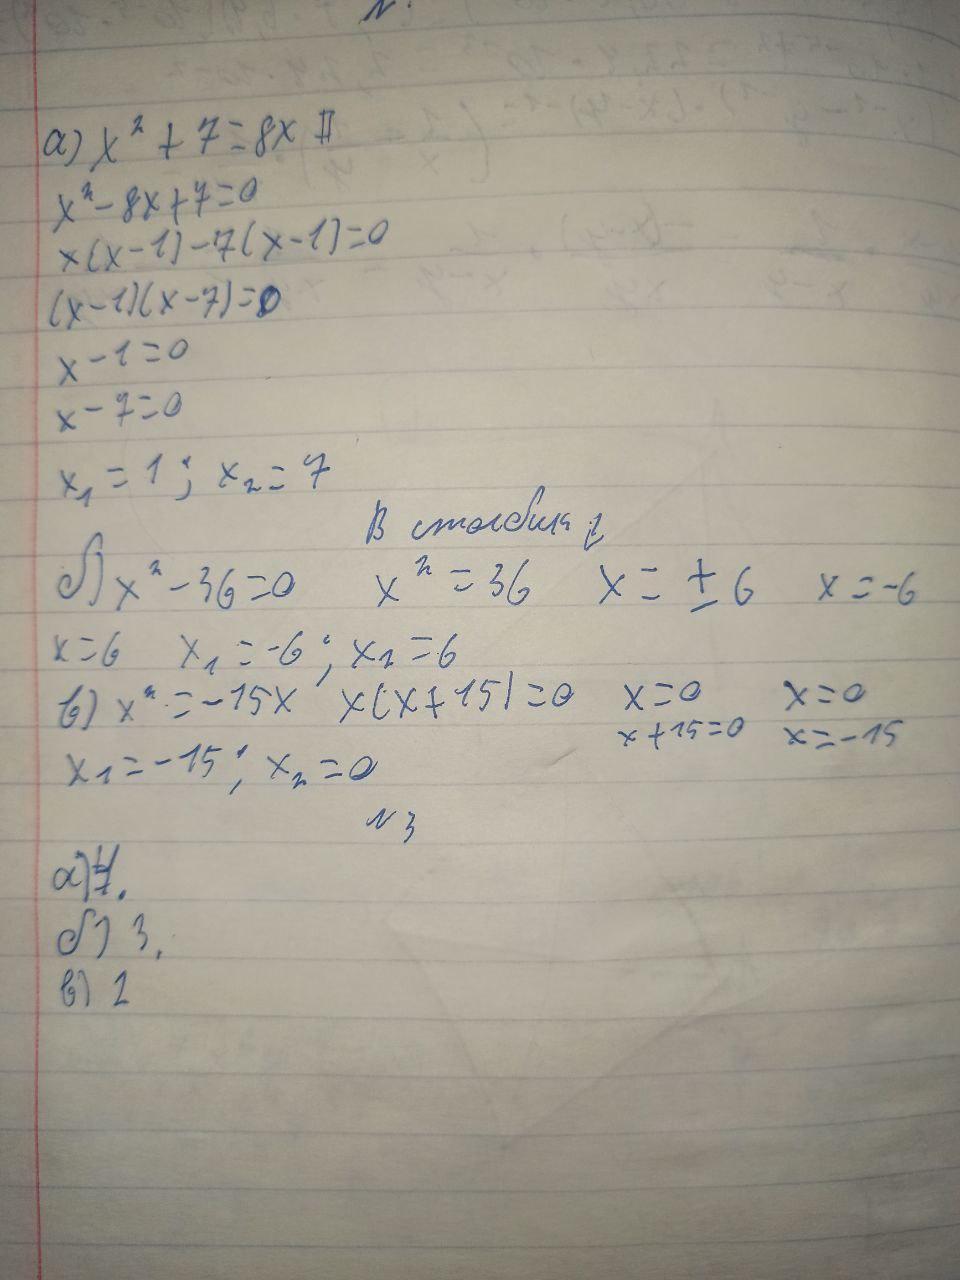 N.
а) x² + 7 = 8x
x² - 8x + 7 = 0
x(x - 1) - 7(x - 1) = 0
(x - 1)(x - 7) = 0
x - 1 = 0
x - 7 = 0
x₁ = 1; x₂ = 7
В столбик
б) x² - 36 = 0 x² = 36 x = ± 6 x = -6
x = 6 x₁ = -6; x₂ = 6
в) x² = -15x x(x + 15) = 0 x = 0 x = 0
x + 15 = 0 x = -15
x₁ = -15; x₂ = 0
N 3
а)
б) 3.
в) 2